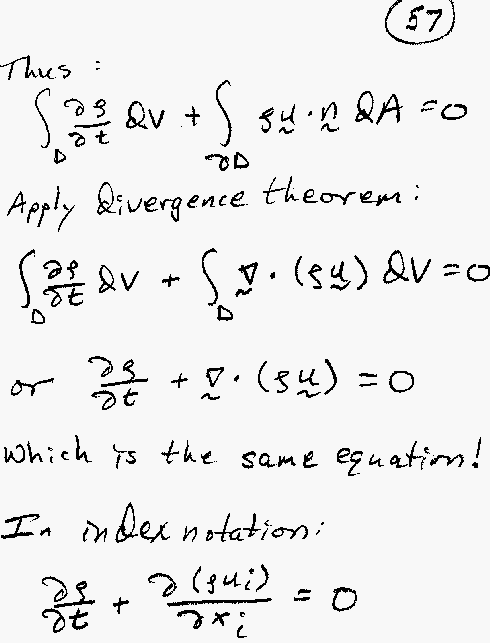 57
Thus :
∫_D ∂ρ/∂t dV + ∫_∂D ρṵ · n̰ dA = 0
Apply divergence theorem :
∫_D ∂ρ/∂t dV + ∫_D ∇̰ · (ρṵ) dV = 0
or ∂ρ/∂t + ∇̰ · (ρṵ) = 0
which is the same equation!
In index notation:
∂ρ/∂t + ∂(ρui)/∂xi = 0